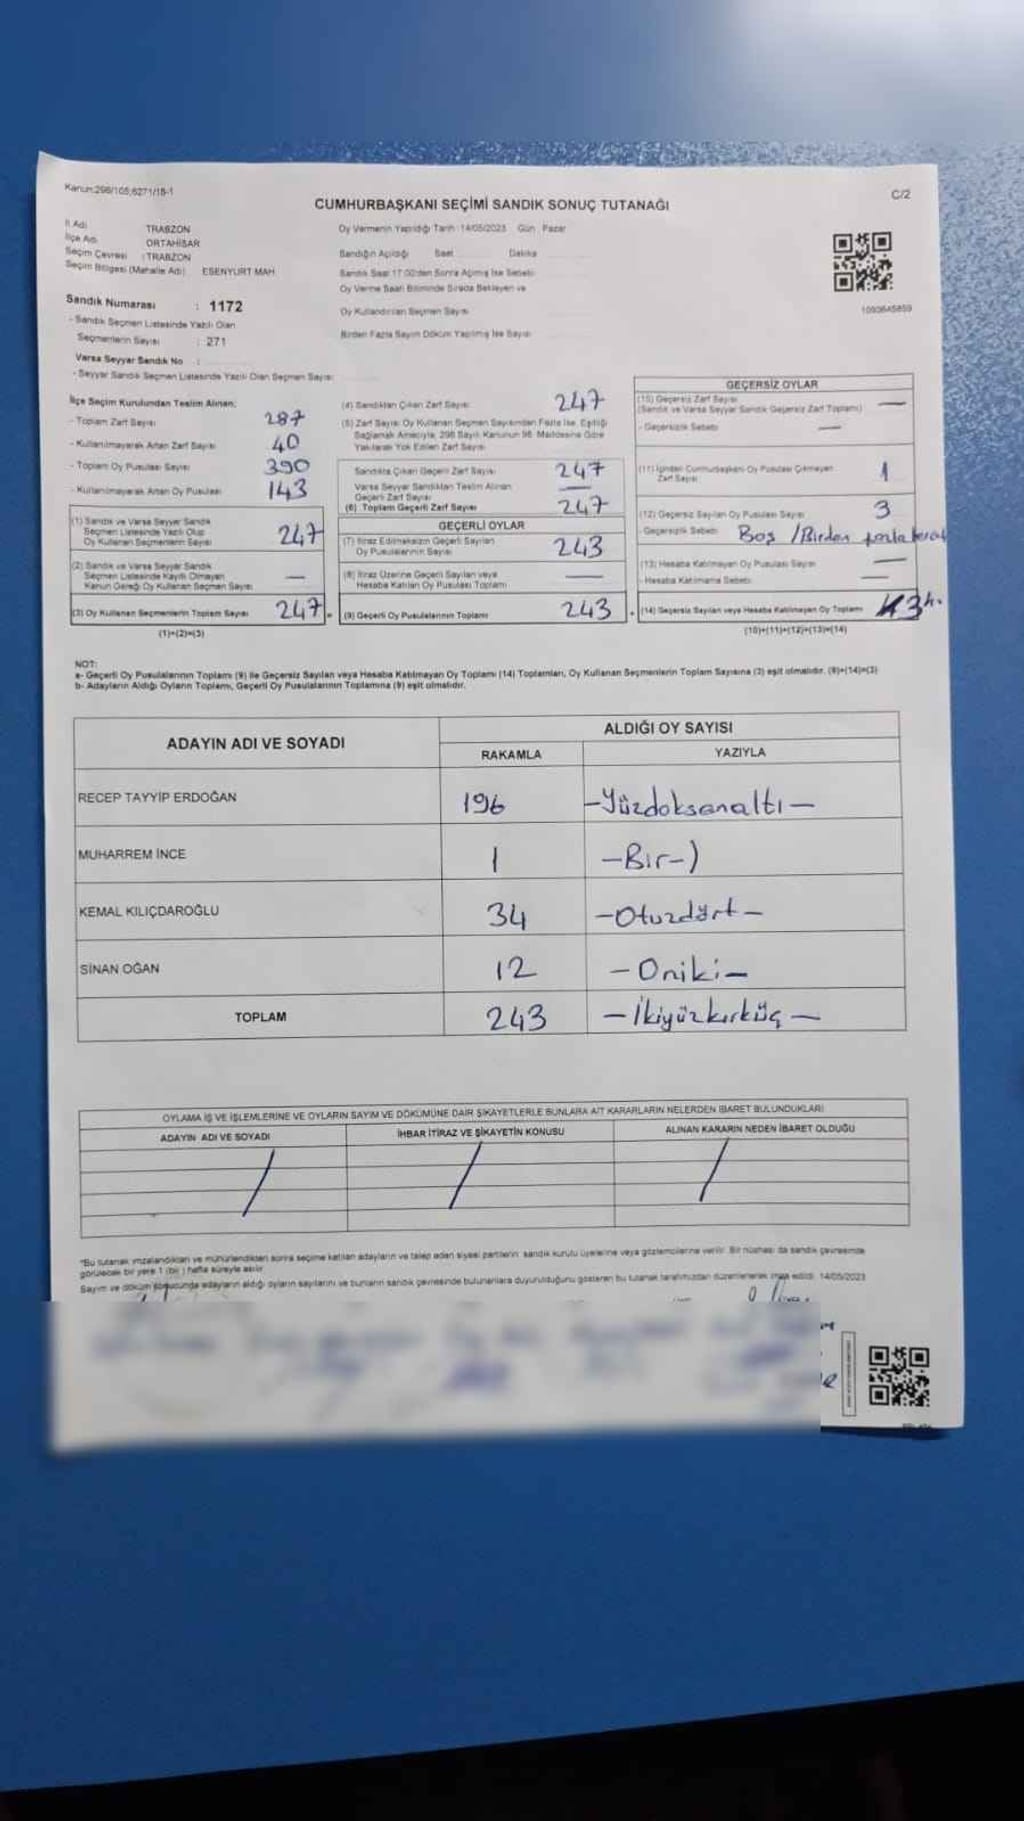 Kanun:298/105;6271/18-1
C/2
CUMHURBAŞKANI SEÇİMİ SANDIK SONUÇ TUTANAĞI
İl Adı TRABZON
İlçe Adı ORTAHİSAR
Seçim Çevresi :TRABZON
Seçim Bölgesi (Mahalle Adı) ESENYURT MAH.
Sandık Numarası : 1172
- Sandık Seçmen Listesinde Yazılı Olan
Seçmenlerin Sayısı : 271
Varsa Seyyar Sandık No :
- Seyyar Sandık Seçmen Listesinde Yazılı Olan Seçmen Sayısı
Oy Vermenin Yapıldığı Tarih :14/05/2023 Gün Pazar
Sandığın Açıldığı Saat Dakika
Sandık Saat 17:00'den Sonra Açılmış İse Sebebi
Oy Verme Saati Bitiminde Sırada Bekleyen ve
Oy Kullandırılan Seçmen Sayısı
Birden Fazla Sayım Döküm Yapılmış İse Sayısı
1093645859
İlçe Seçim Kurulundan Teslim Alınan;
- Toplam Zarf Sayısı 287
- Kullanılmayarak Artan Zarf Sayısı 40
- Toplam Oy Pusulası Sayısı 390
- Kullanılmayarak Artan Oy Pusulası 143
(1) Sandık ve Varsa Seyyar Sandık
Seçmen Listesinde Yazılı Olup
Oy Kullanan Seçmenlerin Sayısı 247
(2) Sandık ve Varsa Seyyar Sandık
Seçmen Listesinde Kayıtlı Olmayan
Kanun Gereği Oy Kullanan Seçmen Sayısı —
(3) Oy Kullanan Seçmenlerin Toplam Sayısı 247
(1)+(2)=(3)
(4) Sandıktan Çıkan Zarf Sayısı 247
(5) Zarf Sayısı Oy Kullanan Seçmen Sayısından Fazla İse, Eşitliği
Sağlamak Amacıyla, 298 Sayılı Kanunun 98. Maddesine Göre
Yakılarak Yok Edilen Zarf Sayısı
Sandıkta Çıkan Geçerli Zarf Sayısı 247
Varsa Seyyar Sandıktan Teslim Alınan
Geçerli Zarf Sayısı —
(6) Toplam Geçerli Zarf Sayısı 247
GEÇERLİ OYLAR
(7) İtiraz Edilmeksizin Geçerli Sayılan
Oy Pusulalarının Sayısı 243
(8) İtiraz Üzerine Geçerli Sayılan veya
Hesaba Katılan Oy Pusulası Toplamı —
(9) Geçerli Oy Pusulalarının Toplamı 243
GEÇERSİZ OYLAR
(10) Geçersiz Zarf Sayısı
(Sandık ve Varsa Seyyar Sandık Geçersiz Zarf Toplamı) —
- Geçersizlik Sebebi —
(11) İçinden Cumhurbaşkanı Oy Pusulası Çıkmayan
Zarf Sayısı 1
(12) Geçersiz Sayılan Oy Pusulası Sayısı 3
- Geçersizlik Sebebi Boş / Birden fazla
(13) Hesaba Katılmayan Oy Pusulası Sayısı —
- Hesaba Katılmama Sebebi —
(14) Geçersiz Sayılan veya Hesaba Katılmayan Oy Toplamı
(10)+(11)+(12)+(13)=(14)
NOT:
a- Geçerli Oy Pusulalarının Toplamı (9) ile Geçersiz Sayılan veya Hesaba Katılmayan Oy Toplamı (14) Toplamları, Oy Kullanan Seçmenlerin Toplam Sayısına (3) eşit olmalıdır. (9)+(14)=(3)
b- Adayların Aldığı Oyların Toplamı, Geçerli Oy Pusulalarının Toplamına (9) eşit olmalıdır.
ADAYIN ADI VE SOYADI
ALDIĞI OY SAYISI
RAKAMLA YAZIYLA
RECEP TAYYİP ERDOĞAN 196 -Yüzdoksanaltı-
MUHARREM İNCE 1 -Bir-)
KEMAL KILIÇDAROĞLU 34 -Otuzdört-
SİNAN OĞAN 12 -Oniki-
TOPLAM 243 -İkiyüzkırküç-
OYLAMA İŞ VE İŞLEMLERİNE VE OYLARIN SAYIM VE DÖKÜMÜNE DAİR ŞİKAYETLERLE BUNLARA AİT KARARLARIN NELERDEN İBARET BULUNDUKLARI
ADAYIN ADI VE SOYADI İHBAR İTİRAZ VE ŞİKAYETİN KONUSU ALINAN KARARIN NEDEN İBARET OLDUĞU
*Bu tutanak imzalandıktan ve mühürlendikten sonra seçime katılan adayların ve talep eden siyasi partilerin sandık kurulu üyelerine veya gözlemcilerine verilir. Bir nüshası da sandık çevresinde
görülecek bir yere 1 (bir) hafta süreyle asılır.
Sayım ve döküm sonucunda adayların aldığı oyların sayılarını ve bunların sandık çevresinde bulunanlara duyurulduğunu gösteren bu tutanak tarafımızdan düzenlenerek imza edildi. 14/05/2023